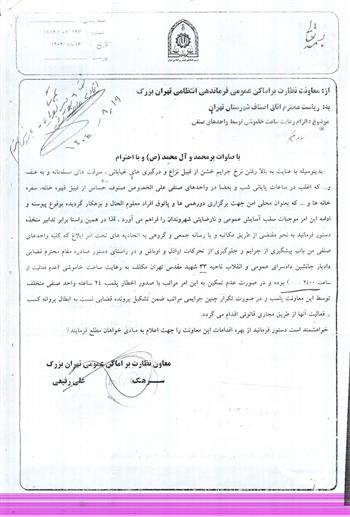 بسمه تعالی
از: معاونت نظارت بر اماکن عمومی فرماندهی انتظامی تهران بزرگ
به: ریاست محترم اتاق اصناف شهرستان تهران
موضوع: الزام رعایت ساعت خاموشی توسط واحدهای صنفی
سلام علیکم
با صلوات بر محمد و آل محمد (ص) و با احترام
بدینوسیله با عنایت به بالا رفتن نرخ جرایم خشن از قبیل نزاع و درگیری های خیابانی، سرقت های مسلحانه و به عنف
و... که اغلب در ساعات پایانی شب و بعضا در واحدهای صنفی علی الخصوص صنوف حساس از قبیل قهوه خانه، سفره
خانه ها و ... که بعنوان محلی امن جهت برگزاری دورهمی ها و پاتوق افراد معلوم الحال و بزهکار گردیده بوقوع پیوسته و
ادامه این امر موجبات سلب آسایش عمومی و نارضایتی شهروندان را فراهم می آورد، لذا در همین راستا برابر تدابیر متخذه
دستور فرمائید به نحو مقتضی از طریق مکاتبه و یا رسانه جمعی و گروهی به اتحادیه های تحت امر ابلاغ که کلیه واحدهای
صنفی من باب پیشگیری از جرایم و جلوگیری از تحرکات اراذل و اوباش و در راستای دستور صادره مقام محترم قضایی
دادیار جانشین دادسرای عمومی و انقلاب ناحیه ۳۳ شهید مقدس تهران مکلف به رعایت ساعت خاموشی (عدم فعالیت از
ساعت ۲۴۰۰ بوده و در صورت عدم تمکین به این امر مراتب با صدور اخطار پلمب ۲۴ ساعته واحد صنفی متخلف
توسط این معاونت پلمب و در صورت تکرار چنین جرایمی مراتب ضمن تشکیل پرونده قضایی نسبت به ابطال پروانه کسب
و فعالیت آنها از طریق مجاری قانونی اقدام می گردد.
خواهشمند است دستور فرمائید از بهره اقدامات این معاونت را جهت اعلام به مبادی خواهان مطلع فرمایند.
معاون نظارت بر اماکن عمومی تهران بزرگ
سرهنگ علی رفیعی